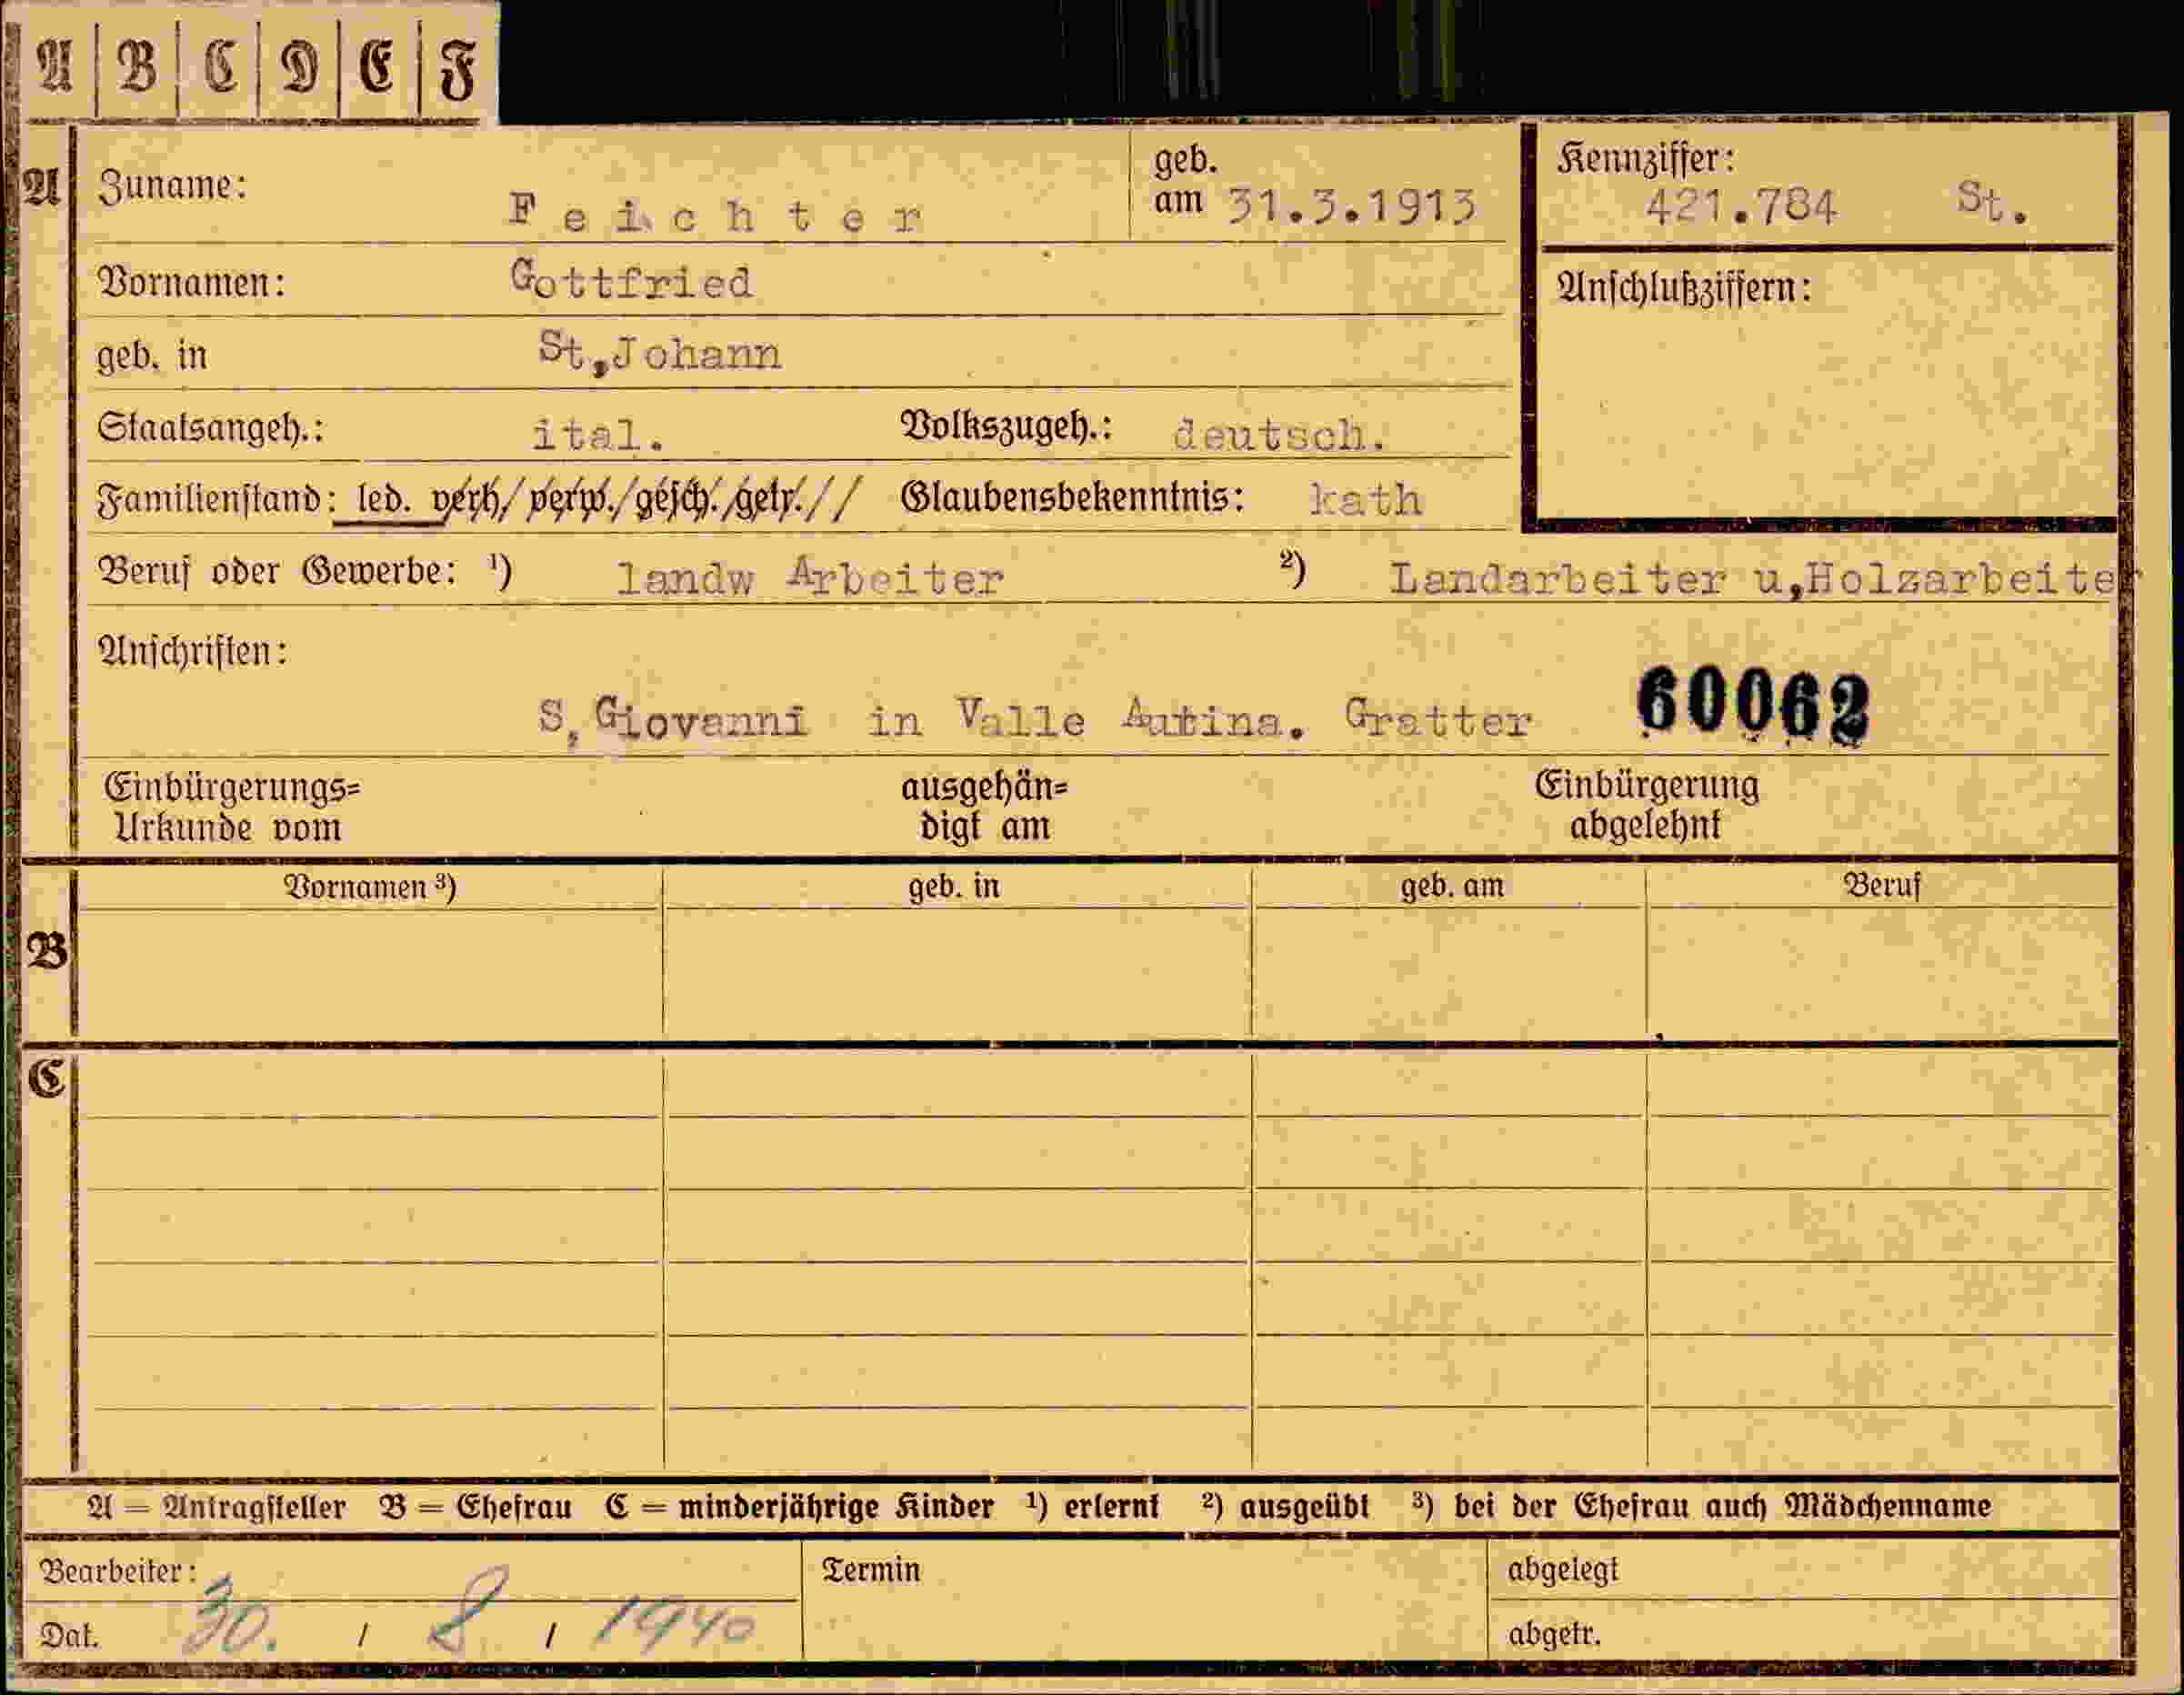 A B C D E F
A Zuname: Feichter geb. am 31.3.1913 Kennziffer: 421.784 St.
Vornamen: Gottfried Anschlußziffern:
geb. in St,Johann
Staatsangeh.: ital. Volkszugeh.: deutsch.
Familienstand: led. verh/ verw./gesch./getr.// Glaubensbekenntnis: kath
Beruf oder Gewerbe: ¹) landw Arbeiter ²) Landarbeiter u,Holzarbeiter
Anschriften:
S,Giovanni in Valle Autina. Gratter 60062
Einbürgerungs= ausgehän= Einbürgerung
Urkunde vom digt am abgelehnt
Vornamen ³) geb. in geb. am Beruf
B
C
A = Antragsteller B = Ehefrau C = minderjährige Kinder ¹) erlernt ²) ausgeübt ³) bei der Ehefrau auch Mädchenname
Bearbeiter: Termin abgelegt
Dat. 30. / 8 / 1940 abgetr.